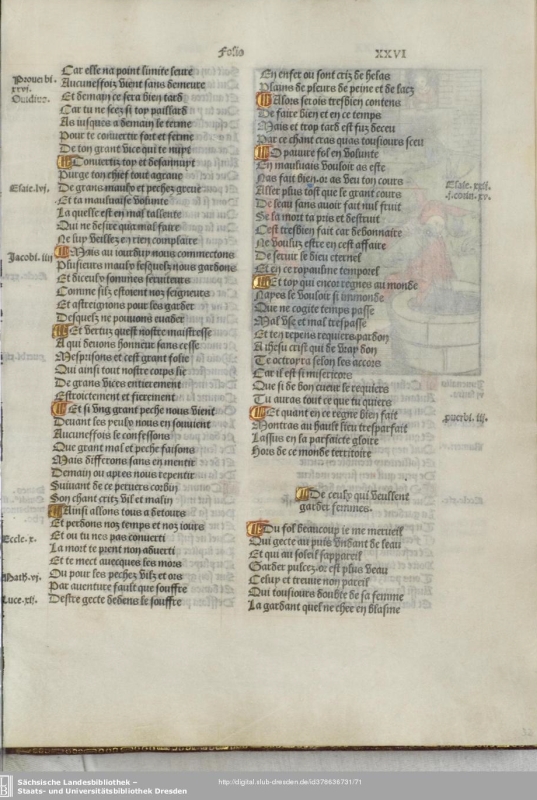 Folio XXVI
Prouerbi.
xxvi.
Ouidius.
Esaie.lvi.
Jacobi. iiii
Eccle. x.
Math.vi.
Luce.xii.
Car elle na point limite seure
Aucuneffoiz vient sans demeure
Et demain ce sera bien tard
Car tu ne scez si toy paillard
As iusques a demain le terme
Pour te conuertir fort et ferme
De ton grant vice qui te nuyt
Conuertiz toy et desannuyt
Purge ton chief tout agraue
De grans maulx et pechez greue
Et ta mauluaise volunte
La quelle est en mal tallente
Qui ne desire que mal faire
Ne luy veillez en rien complaire
Mais au iourduy nous commectons
Plusieurs maulx lesquelz nous gardons
Et diceulx sommes seruiteurs
Comme silz estoient noz seigneurs
Et astreignons pour les garder
Desquelz ne pouuons euader
Et vertuz quest nostre maistresse
A qui deuons honneur sans cesse
Mesprisons et cest grant folie
Qui ainsi tout nostre corps lie
De grans vices entierement
Estroictement et fierement
Et si vng grant peche nous vient
Deuant les yeulx nous en souuient
Aucuneffois le confessons
Que grant mal et peche faisons
Mais differons sans en mentir
Demain ou apres nous repentir
Suiuant de ce peruers corbin
Son chant criz vil et malin
Ainsi allons tous a detours
Et perdons noz temps et noz iours
Et ou tu nes pas conuerti
La mort te prent non aduerti
Et te mect auecques les mors
Ou pour les pechez vilz et ors
Par auenture fault que souffre
Destre gecte dedens le souffre
En enfer ou sont criz de helas
Plains de pleurs de peine et de lacz
Alors serois tresbien contens
De faire bien et en ce temps
Mais et trop tard est fuz deceu
Par ce chant cras quas tousiours sceu
O pauure fol en volunte
En mauluais vouloir as este
Nas fait bien. as veu ton cours
Aller plus tost que le grant cours
De leau sans auoir fait nul fruit
Se la mort ta pris et destruit
Cest tresbien fait car debonnaire
Ne vouluz estre en cest affaire
De seruir le dieu eternel
Et en ce royaulme temporel
Et toy qui encor regnes au monde
Nayes le vouloir si immonde
Que ne cogite temps passe
Mal vse et mal trespasse
Et ten repens requiers pardon
A ihesu crist qui de vray don
Te octroyra selon les accors
Car il est si misericors
Que si de bon cueur le requiers
Tu auras tout ce que tu quiers
Et quant en ce regne bien fait
Montras au hault lieu tresparfait
Lassus en la parfaicte gloire
Hors de ce monde territoire
Esaie. xxii.
.i. corin. xv.
prouerbi. iii.
De ceulx qui veullent
garder femmes.
Du fol beaucoup ie me merueil
Qui gecte au puis vndant de leau
Et qui au soleil sappareil
Garder pulcez. or est plus veau
Celuy et treuue non pareil
Qui tousiours doubte de sa femme
La gardant quel ne chee en blasme
Sächsische Landesbibliothek –
Staats- und Universitätsbibliothek Dresden
http://digital.slub-dresden.de/id378636731/71